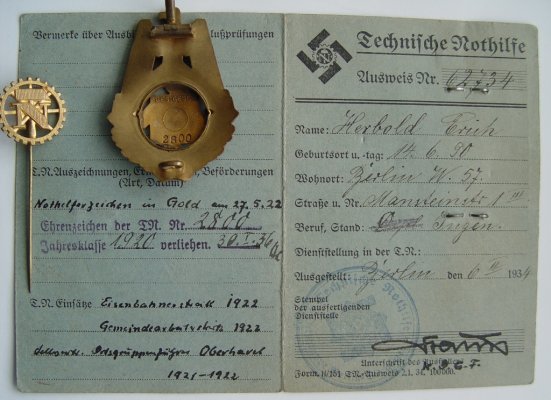 Vermerke über
T.N. Auszeichnungen,
Beförderungen
(Art, Datum)
Nothilferzeichen in Gold am 27.5.22
Ehrenzeichen der TN. Nr. 2800
Jahresklasse 1920 verliehen.
T.N. Einsätze Eisenbahnerstreik 1922
Gemeindearbeiterstreik 1922
Ortsgruppenführer Oberhavel
1921-1922
2800
Technische Nothilfe
Ausweis Nr. 62734
Name: Herbold Erich
Geburtsort u. -tag: 14. 6. 90
Wohnort: Berlin W. 57.
Straße u. Nr. Mansteinstr. 1
Beruf, Stand: Ingen.
Dienststellung in der T.N.:
Ausgestellt: Berlin den 6. 1934
Stempel
der ausfertigenden
Dienststelle
Unterschrift des
Form. II/151 T.N.-Ausweis 2.1. 34. 100000.